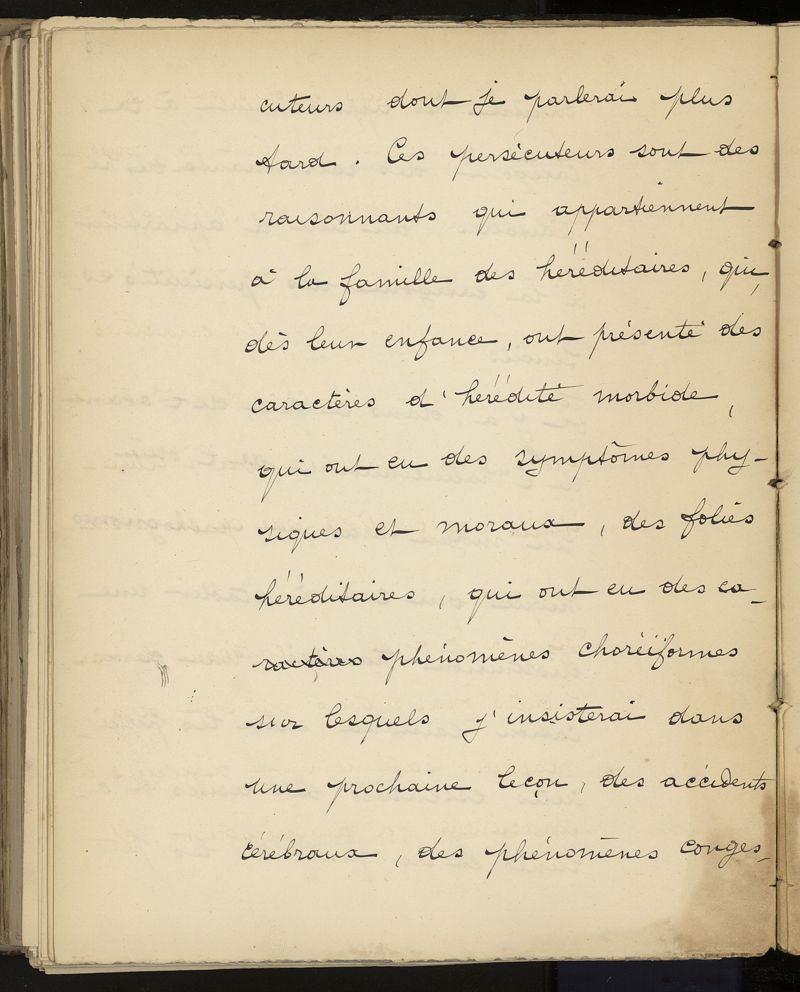 cuteurs dont je parlerai plus
tard. Ces persécuteurs sont des
raisonnants qui appartiennent
à la famille des héréditaires, qui,
dès leur enfance, ont présenté des
caractères d'hérédité morbide,
qui ont eu des symptômes phy-
siques et moraux, des folies
héréditaires, qui ont eu des ca-
ractères phénomènes choréïformes
sur lesquels j'insisterai dans
une prochaine leçon, des accidents
cérébraux, des phénomènes conges-